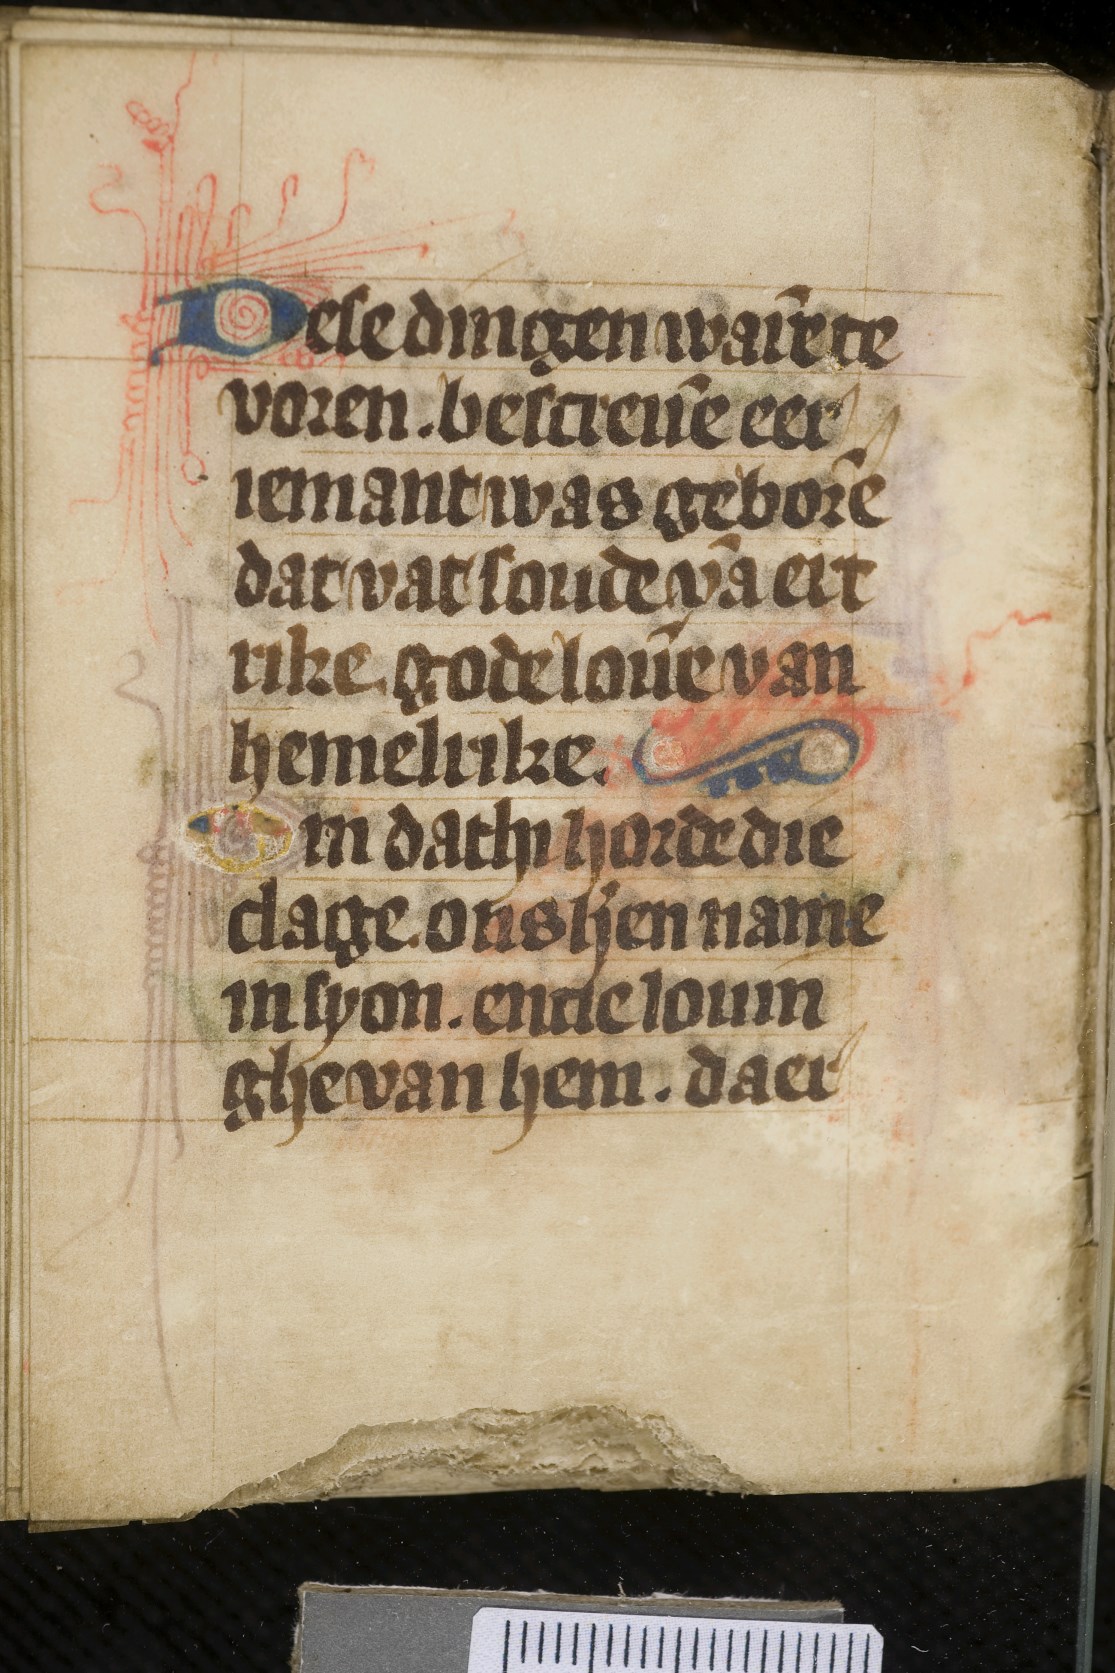 Dese dingen warē te
voren. bescreuē eer
iemant was geborē
dat vat soude vā ert
rike. gode louē van
hemelrike.
Om dat hi horde die
clage. ons hēen name
in syon. ende louin
ghe van hem. daer